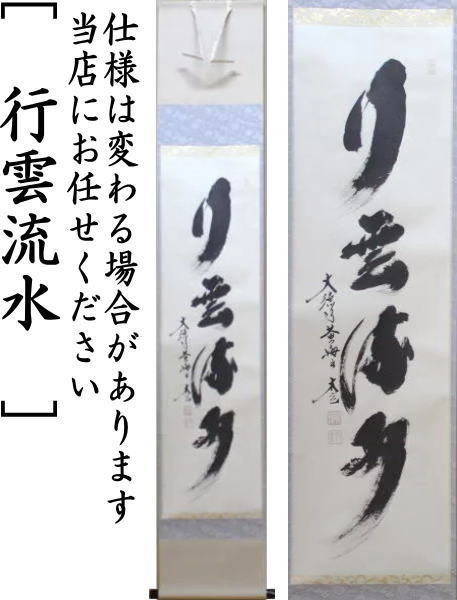 仕様は変わる場合があります
当店にお任せください
[行雲流水]
行雲流水
行雲流水